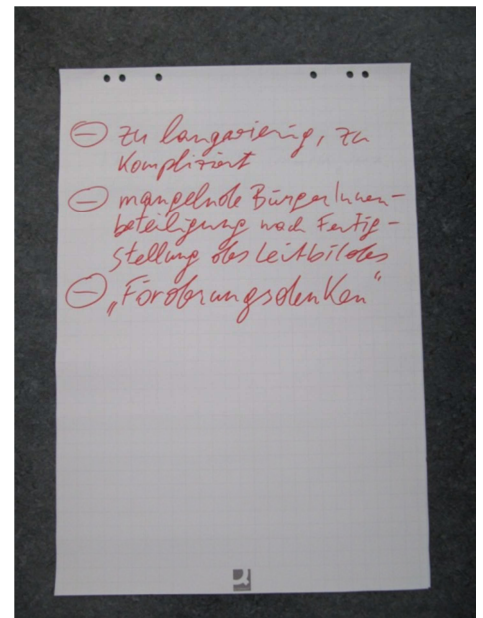 ⊖ zu langwierig, zu
kompliziert
⊖ mangelnde BürgerInnen-
beteiligung nach Fertig-
stellung des Leitbildes
⊖ „Förderungsdenken"